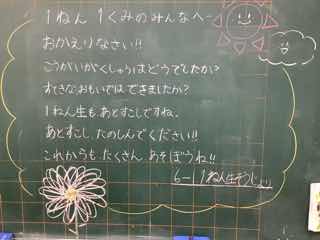 1ねん 1くみのみんなへ
おかえりなさい!!
こうがいがくしゅうはどうでしたか?
すてきなおもいではできましたか?
1ねん生も、あとすこしですね。
あとすこし、たのしんでください!!
これからも、たくさん、あそぼうね!!
6-1 1ねん生そうじ